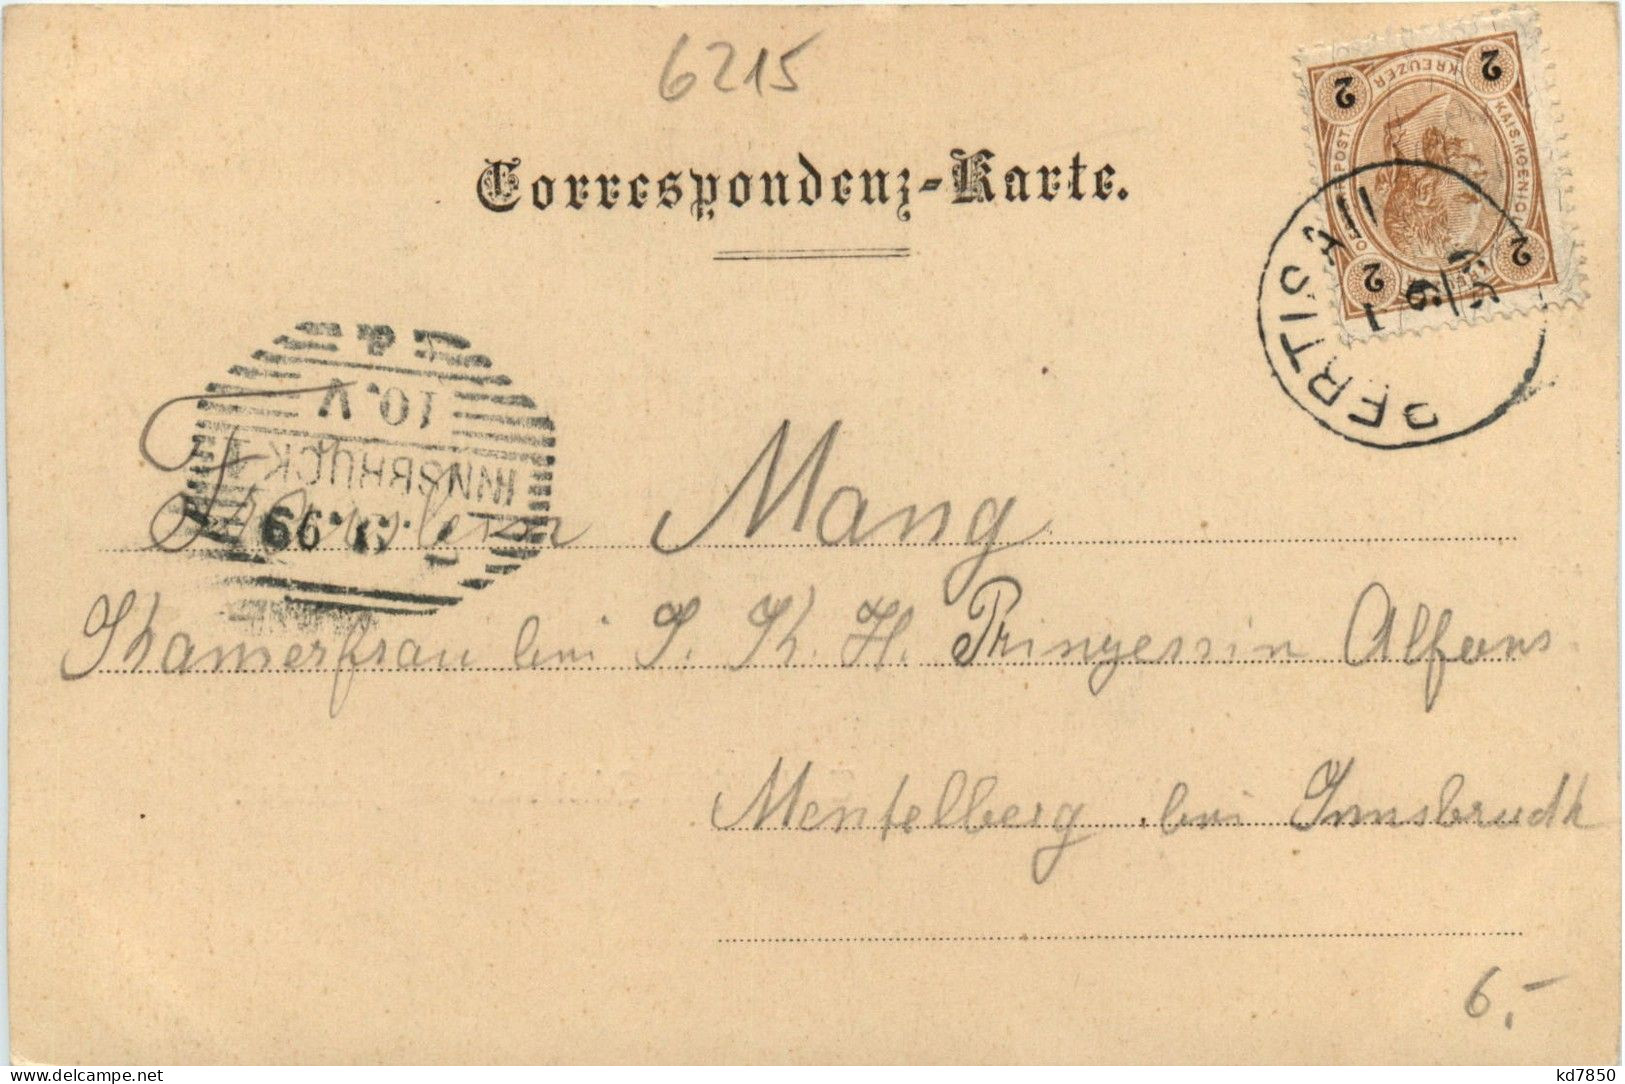 6215
Correspondenz-Karte.
2 2 2 2
KREUZER
KAIS. KOENIGL
OE POST
PERTISA
10. V
INNSBRUCK 1
99
Fräulein Mang
Kamerfrau bei I. K. H. Prinzessin Alfons
Mentelberg bei Innsbruck
6,-
delcampe.net
kd7850